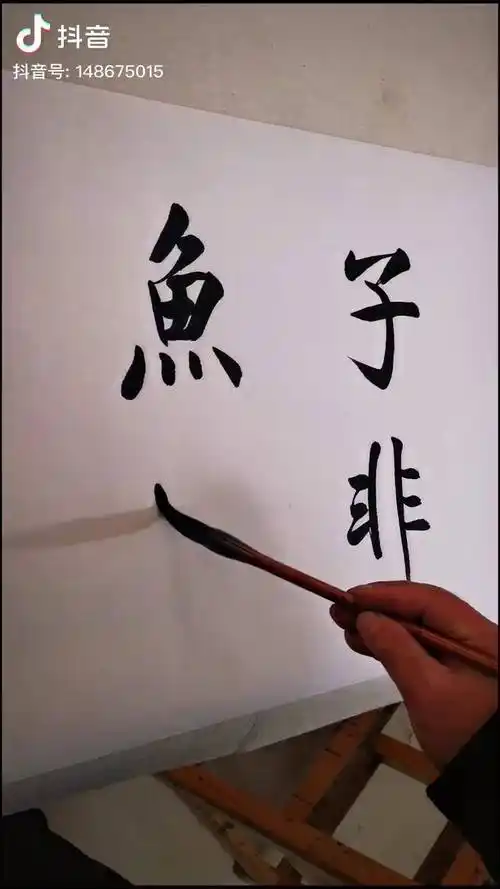 抖音
抖音号: 148675015
子非
魚